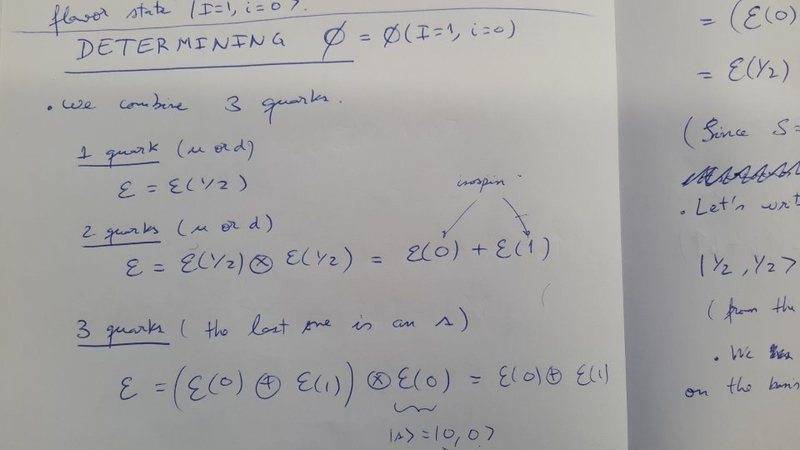 flavor state |I=1, i=0⟩.
DETERMINING Ø = Ø(I=1, i=0)
. We combine 3 quarks.
1 quark (u or d)
ℰ = ℰ(1/2)
isospin
2 quarks (u or d)
ℰ = ℰ(1/2) ⊗ ℰ(1/2) = ℰ(0) + ℰ(1)
3 quarks (the last one is an s)
ℰ = (ℰ(0) ⊕ ℰ(1)) ⊗ ℰ(0) = ℰ(0) ⊕ ℰ(1)
|s> = |0,0>
= (ℰ(0)
= ℰ(1/2)
(Since S=
. Let's writ
|1/2, 1/2>
(from the
. We
on the